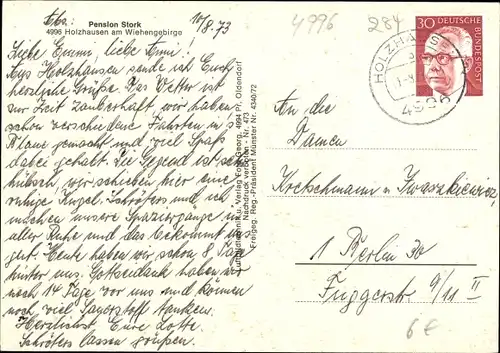 Pension Stork
4996 Holzhausen am Wiehengebirge
10/8.73
4996
284
Liebe Emmi, liebe Anni!
Aus Holzhausen sende ich Euch
herzliche Grüße. Das Wetter ist
zur Zeit zauberhaft, wir haben
schon verschiedene Fahrten ins
Blaue gemacht und viel Spaß
dabei gehabt. Die Gegend ist sehr
hübsch, wir schieben hier eine
ruhige Kugel. Schröters und ich
machen unsere Spaziergänge in
aller Ruhe und das bekommt uns
gut. Heute haben wir schon 8 Tage
hinter uns. Gottseidank haben wir
noch 14 Tage vor uns und können
noch viel Sauerstoff tanken.
Herzlichst Eure Lotte.
Schröters lassen grüßen.
Verlag 4994 Pr. Oldendorf
Nachdruck verboten - Nr. 473
Freigeg. Reg.-Präsident Münster Nr. 4340/72
30 DEUTSCHE
BUNDESPOST
HOLZHAUS
4996
An die
Damen
Kretschmann u. Iwaszkiewicz
1 Berlin 30
Fuggerstr. 9/11 II
6€